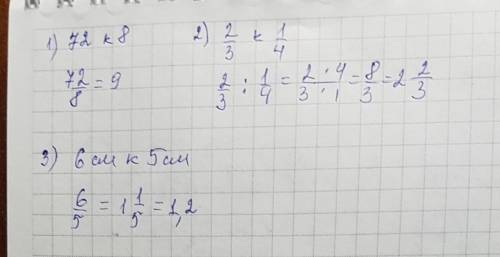 1) 72 к 8
72/8 = 9
2) 2/3 к 1/4
2/3 : 1/4 = 2·4/3·1 = 8/3 = 2 2/3
3) 6 см к 5 см
6/5 = 1 1/5 = 1,2